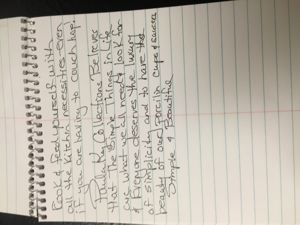 Cook & feed yourself with
all the kitchin necessities every
if you are having to couch hop.
Paula Kay Collections Believes
that the simple things in life
are what we all need & look for
& Everyone deserves the luxury
of simplicity and to have the
beauty of our Porcilin cups & saucers
Simple & Beautiful